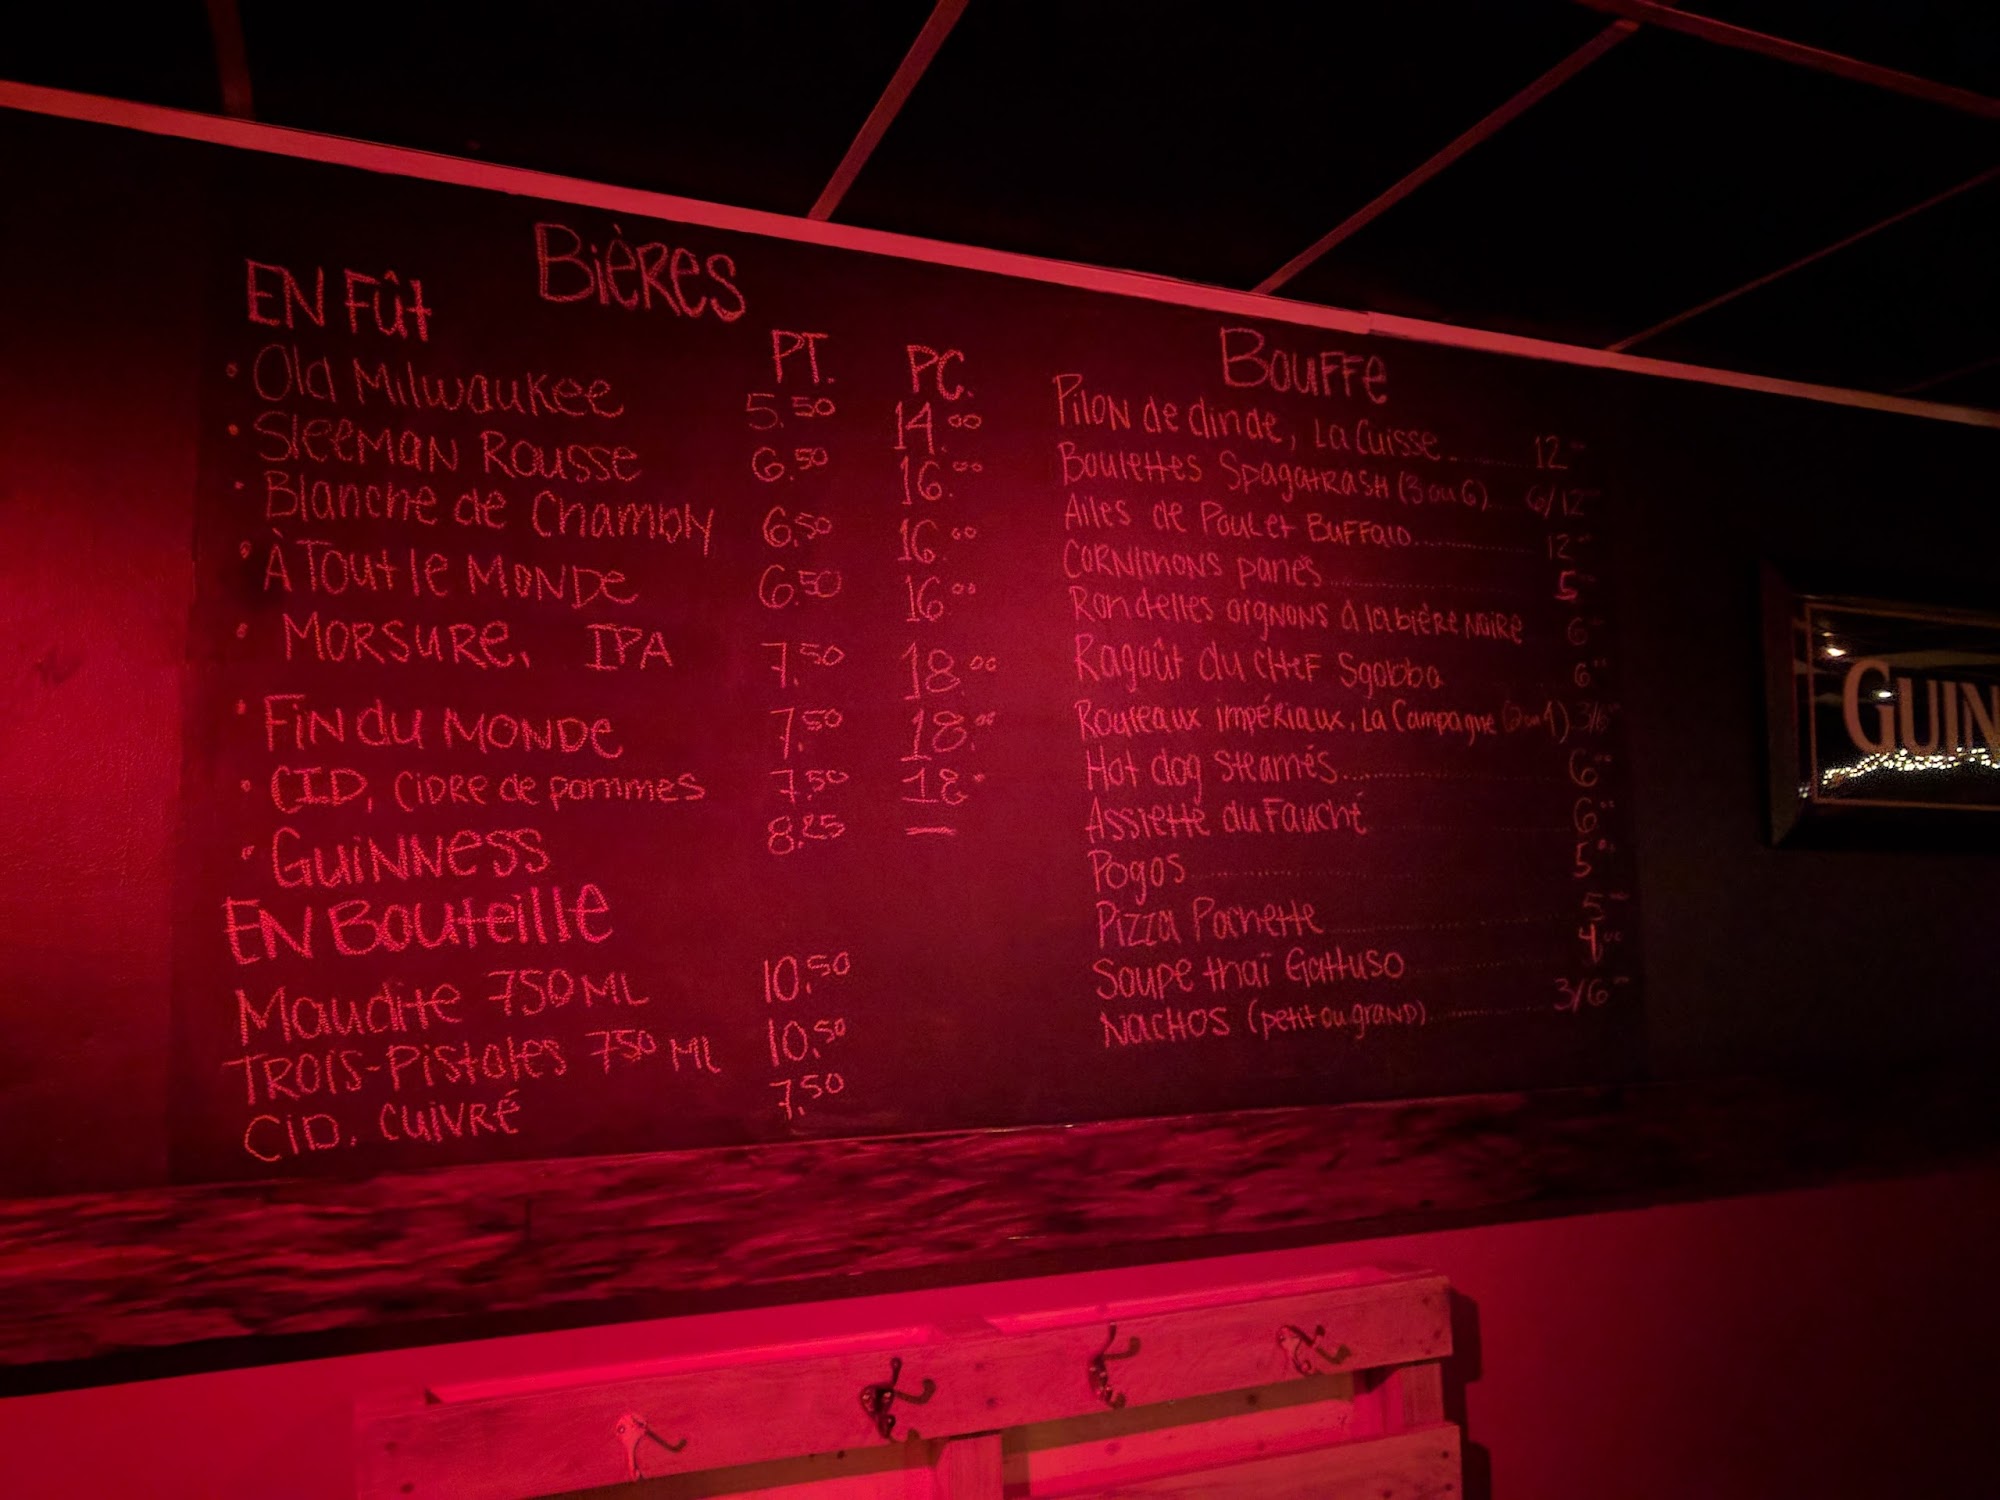 Bières
EN Fût PT. PC.
• Old Milwaukee 5.50 14.00
• Sleeman Rousse 6.50 16.00
• Blanche de Chambly 6.50 16.00
• À Tout le Monde 6.50 16.00
• Morsure, IPA 7.50 18.00
• Fin du Monde 7.50 18.00
• CID, Cidre de pommes 7.50 18.
• Guinness 8.25 —
EN Bouteille
Maudite 750 ML 10.50
Trois-Pistoles 750 ML 10.50
CID. Cuivré 7.50
Bouffe
Pilon de dinde, La Cuisse 12
Boulettes Spagatrash (3 ou 6) 6/12
Ailes de Poulet Buffalo 12
Cornichons panés 5
Rondelles oignons à la bière noire 6
Ragoût du chef Sgobba 6
Rouleaux impériaux, La Campagne (2 ou 4) 3/6
Hot dog steamés 6.00
Assiette du Fauché 6
Pogos 5
Pizza Pochette 5
Soupe thaï Gattuso 4.00
Nachos (petit ou grand) 3/6
GUIN